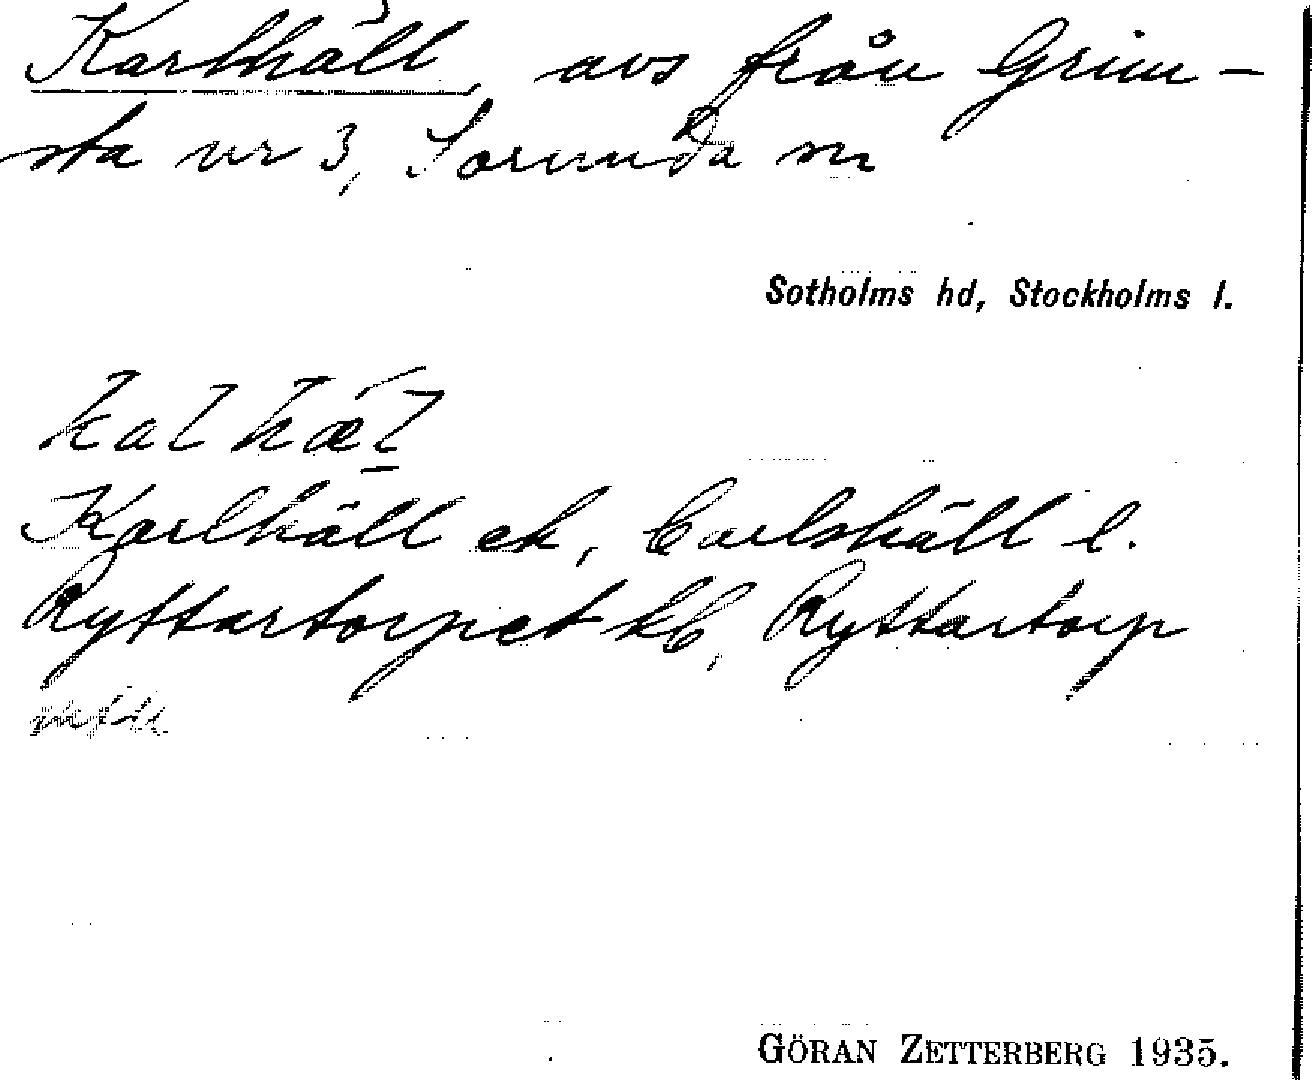 Karlhäll, avs från Grim-
sta nr 3, Sorunda sn
Sotholms hd, Stockholms l.
kalhæ̀l̠
Karlhäll ek, Carlshäll l.
Ryttartorpet kb, Ryttartorp
GÖRAN ZETTERBERG 1935.